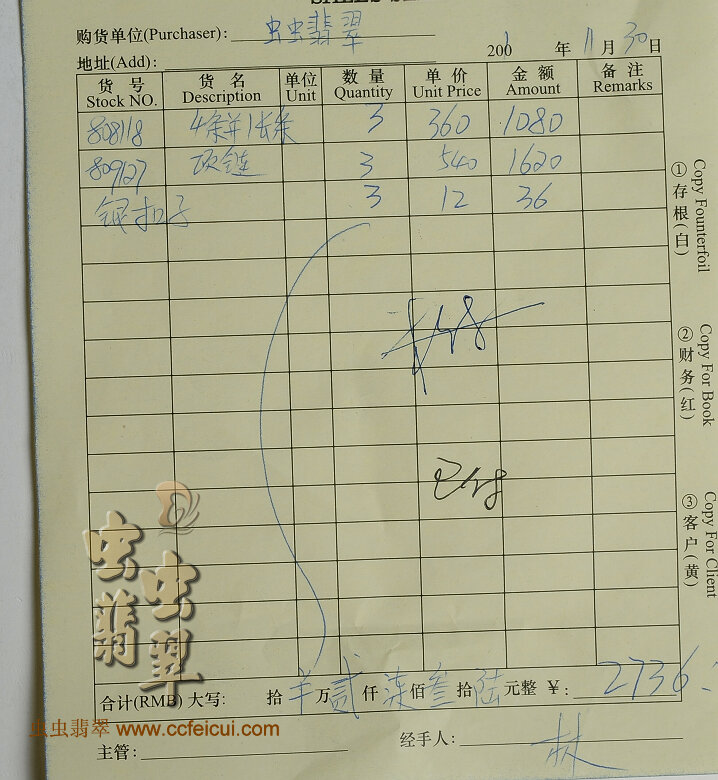 购货单位(Purchaser): 虫虫翡翠
地址(Add): 200 年 11 月 30 日
货号 Stock NO. 货名 Description 单位 Unit 数量 Quantity 单价 Unit Price 金额 Amount 备注 Remarks
808118 4条并1长条 3 360 1080
809127 项链 3 540 1620
银扣子 3 12 36
①存根(白) Copy Founterfoil
②财务(红) Copy For Book
③客户(黄) Copy For Client
已付
虫虫翡翠
合计(RMB) 大写: 拾 万 贰 仟 柒 佰 叁 拾 陆 元整 ¥: 2736
虫虫翡翠 www.ccfeicui.com
主管: 经手人: 林